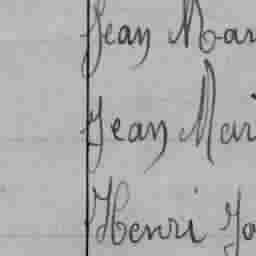 Jean Mar
Jean Mari
Henri Jo